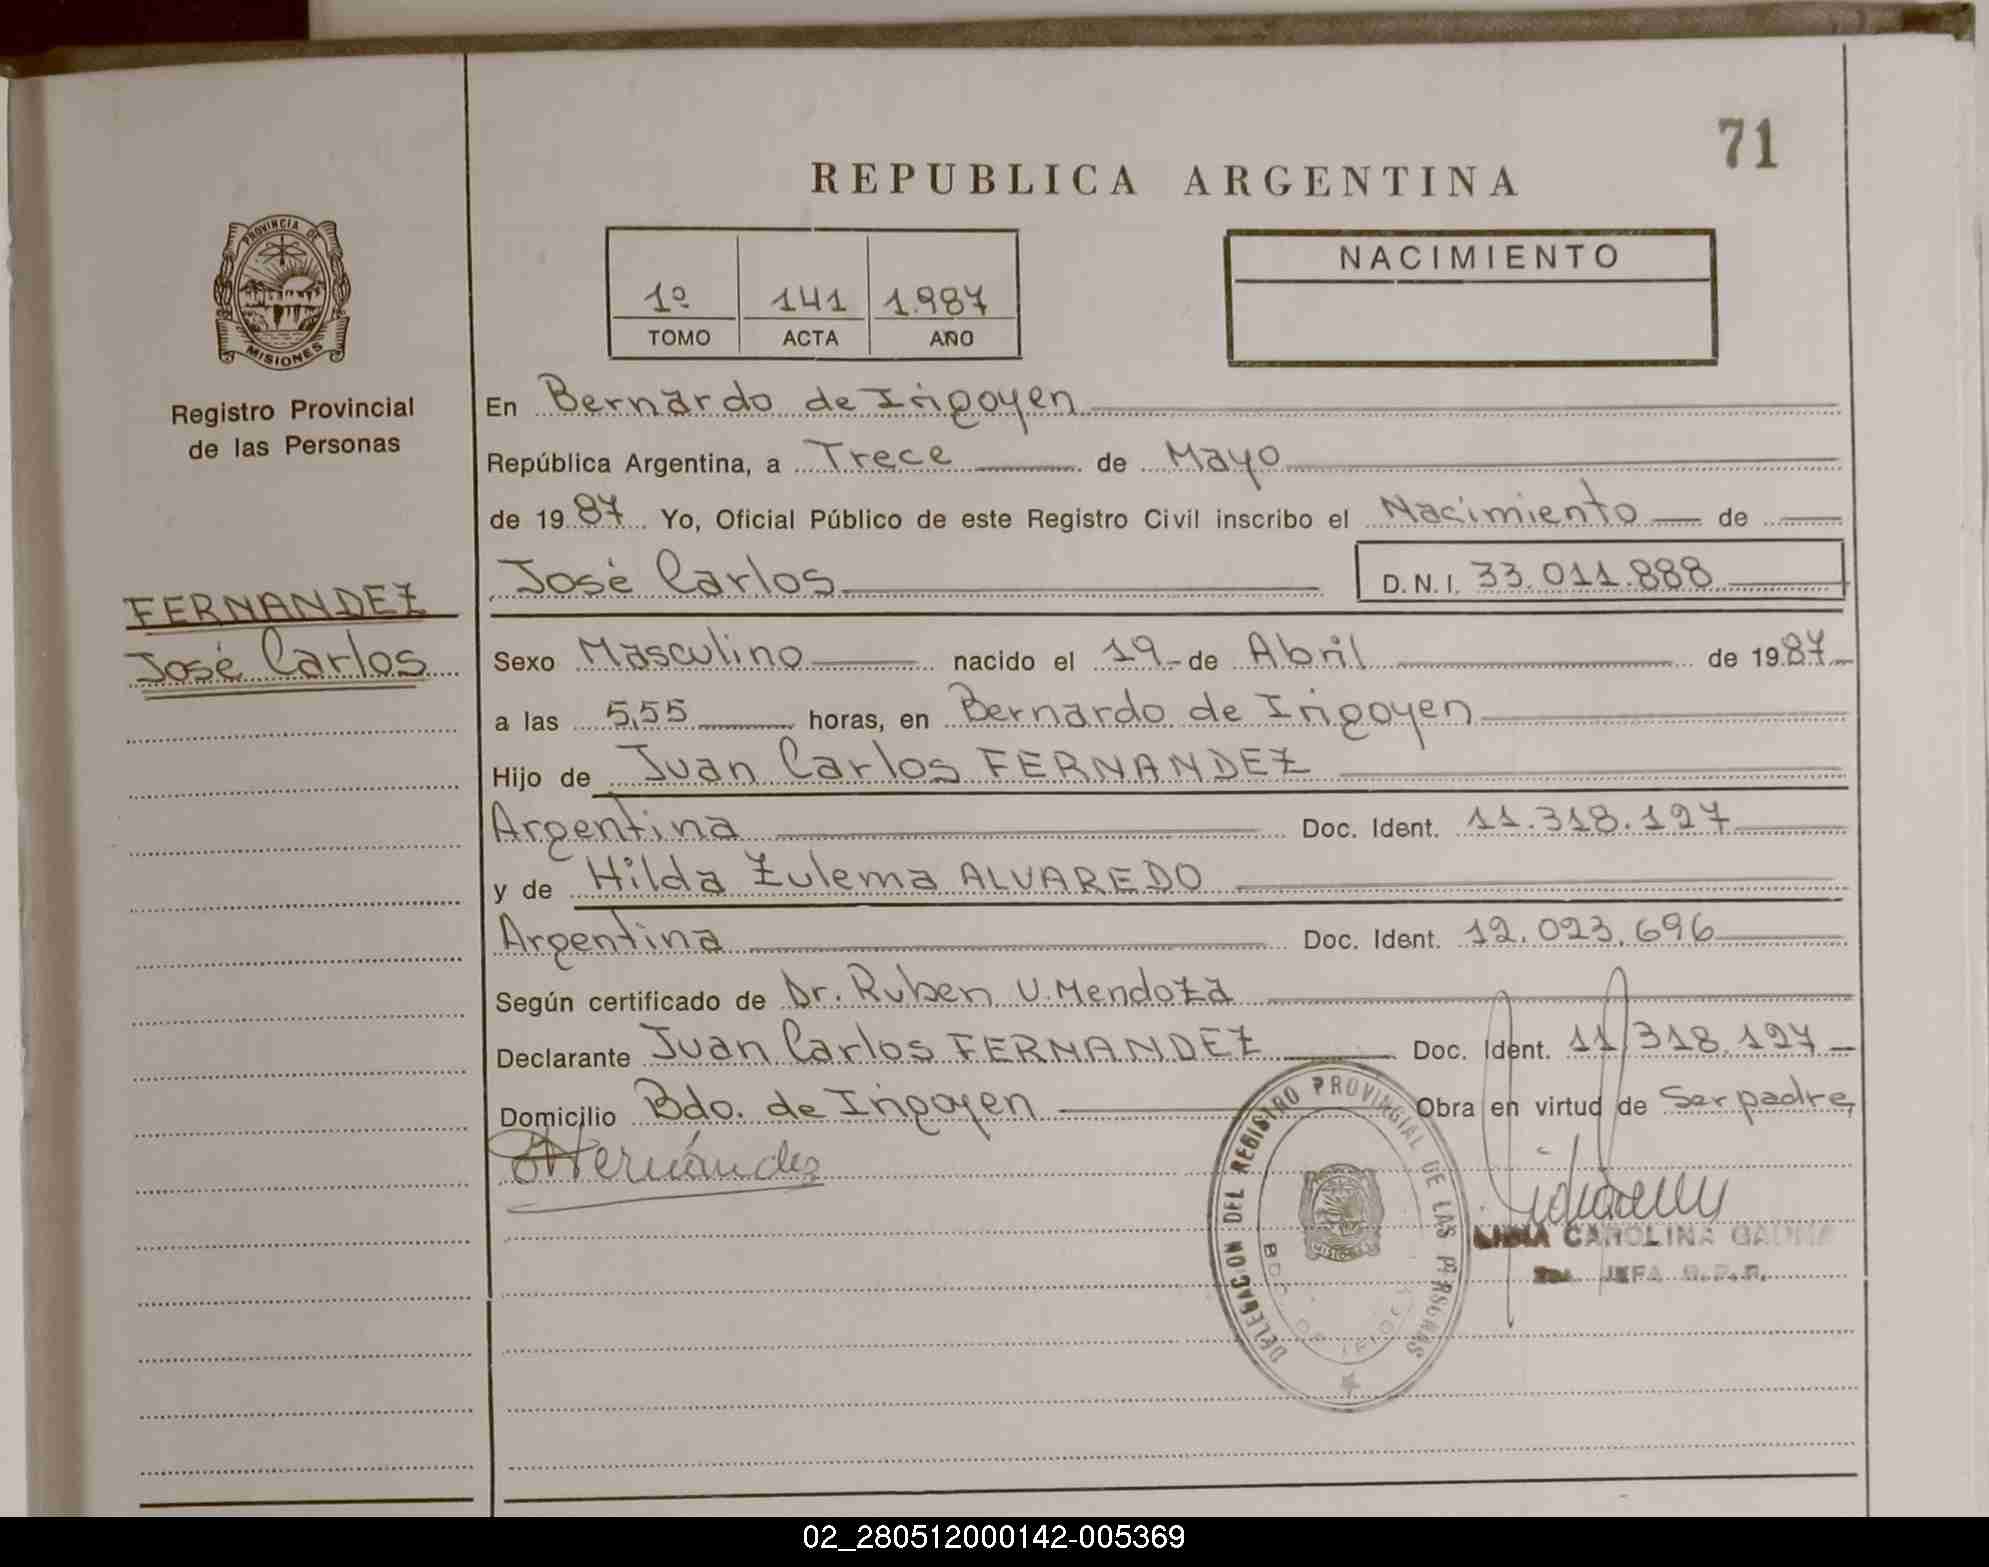 71
REPUBLICA ARGENTINA
PROVINCIA DE
MISIONES
Registro Provincial
de las Personas
1º 141 1.987
TOMO ACTA AÑO
NACIMIENTO
En Bernardo de Irigoyen
República Argentina, a Trece de Mayo
de 1987 Yo, Oficial Público de este Registro Civil inscribo el Nacimiento de
José Carlos D.N.I. 33.011.888
FERNANDEZ
José Carlos
Sexo Masculino nacido el 19 de Abril de 1987
a las 5,55 horas, en Bernardo de Irigoyen
Hijo de Juan Carlos FERNANDEZ
Argentina Doc. Ident. 11.318.127
y de Hilda Zulema ALVAREDO
Argentina Doc. Ident. 12.023.696
Según certificado de Dr. Ruben U. Mendoza
Declarante Juan Carlos FERNANDEZ Doc. Ident. 11.318.127
Domicilio Bdo. de Irigoyen Obra en virtud de Ser padre
Fernández
DELEGACION DEL REGISTRO PROVINCIAL DE LAS PERSONAS
MISIONES
LIDIA CAROLINA
JEFA
02_280512000142-005369